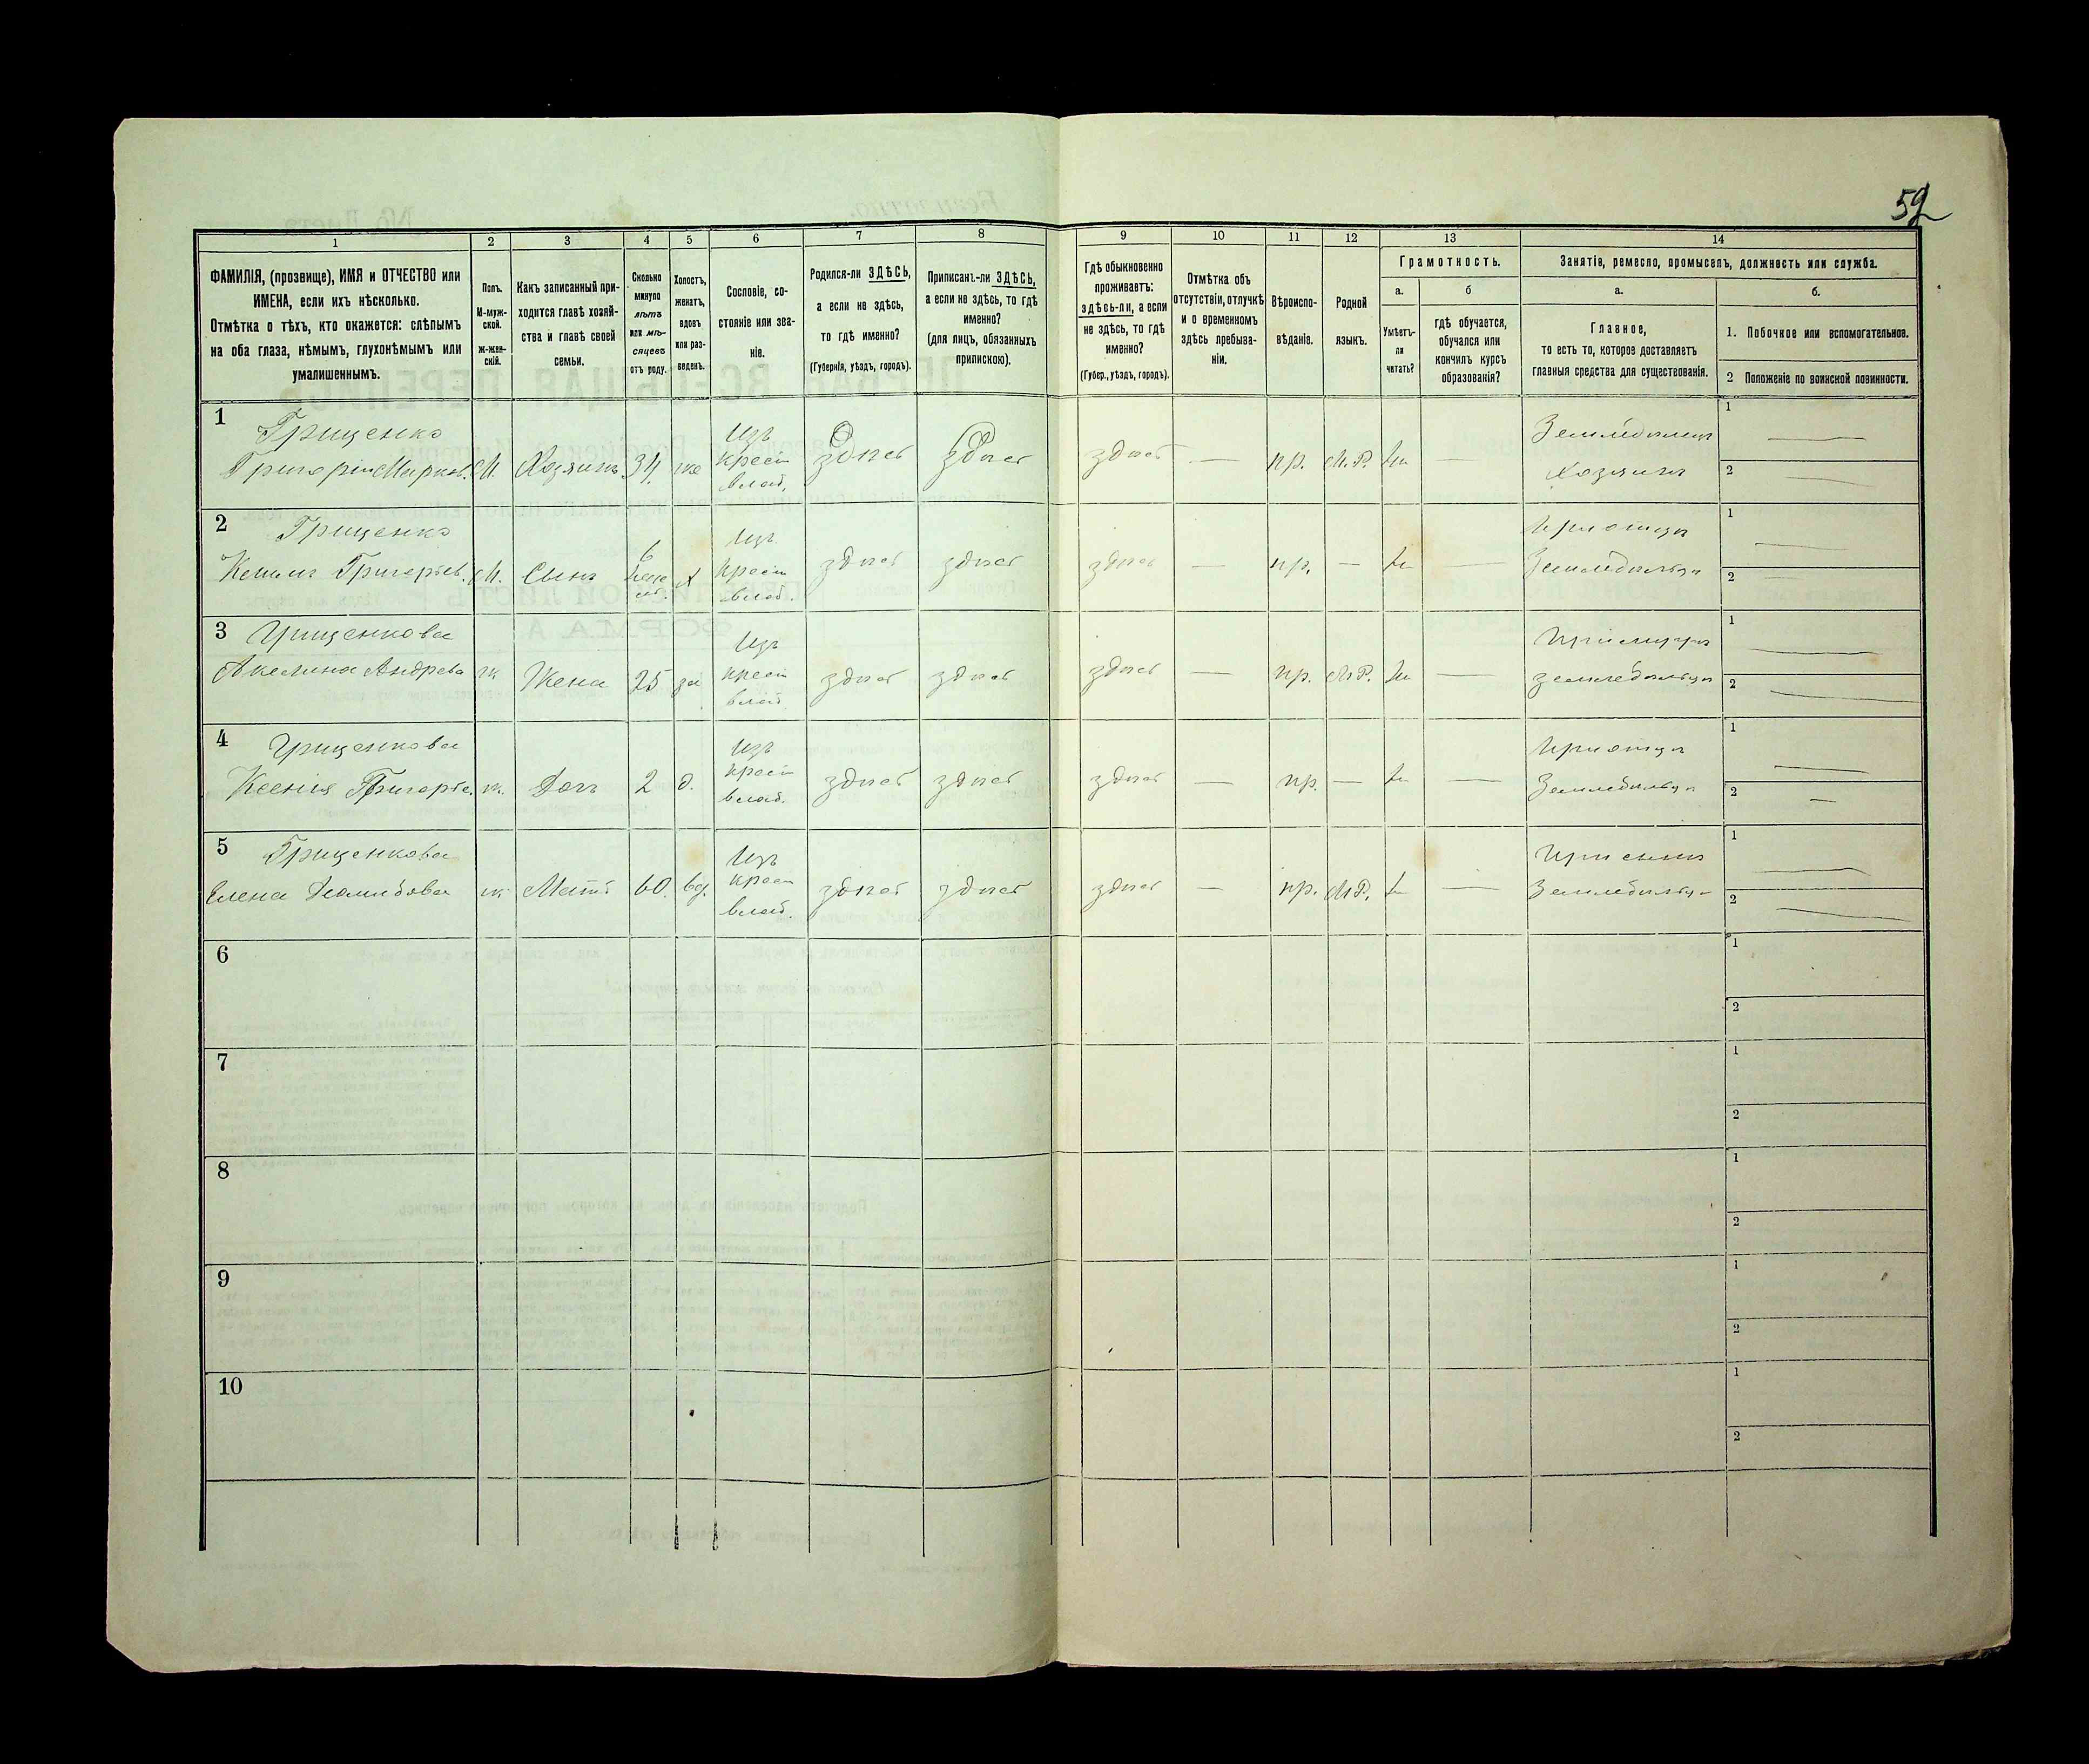 59
1 2 3 4 5 6 7 8 9 10 11 12 13 14
ФАМИЛІЯ, (прозвище), ИМЯ и ОТЧЕСТВО или
ИМЕНА, если ихъ нѣсколько.
Отмѣтка о тѣхъ, кто окажется: слѣпымъ
на оба глаза, нѣмымъ, глухонѣмымъ или
умалишеннымъ.
Полъ.
М-муж-
ской.
ж-жен-
скій.
Какъ записанный при-
ходится главѣ хозяй-
ства и главѣ своей
семьи.
Сколько
минуло
лѣтъ
или мѣ-
сяцевъ
отъ роду.
Холостъ,
женатъ,
вдовъ
или раз-
веденъ.
Сословіе, со-
стояніе или зва-
ніе.
Родился-ли ЗДѢСЬ,
а если не здѣсь,
то гдѣ именно?
(Губернія, уѣздъ, городъ).
Приписанъ-ли ЗДѢСЬ,
а если не здѣсь, то гдѣ
именно?
(для лицъ, обязанныхъ
припискою).
Гдѣ обыкновенно
проживаетъ:
здѣсь-ли, а если
не здѣсь, то гдѣ
именно?
(Губер., уѣздъ, городъ).
Отмѣтка объ
отсутствіи, отлучкѣ
и о временномъ
здѣсь пребыва-
ніи.
Вѣроиспо-
вѣданіе.
Родной
языкъ.
Грамотность.
а.
Умѣетъ-
ли
читать?
б
гдѣ обучается,
обучался или
кончилъ курсъ
образованія?
Занятіе, ремесло, промыселъ, должность или служба.
а.
Главное,
то есть то, которое доставляетъ
главныя средства для существованія.
б.
1. Побочное или вспомогательное.
2 Положеніе по воинской повинности.
1
Грищенко
Григорій Марков. М. Хозяинъ 34 же
Изъ
крест
влад.
здѣсь здѣсь здѣсь — пр. М.Р. —
Земледѣлецъ
Хозяинъ
1 —
2 —
2
Грищенко
Григорьев. М. Сынъ
6
Х
Изъ
крест
влад.
здѣсь здѣсь здѣсь — пр. — —
Земледѣльца
1 —
2 —
3 Грищенкова
Акелина Андрева ж Жена 25 за
Изъ
крест
влад.
здѣсь здѣсь здѣсь — пр. М.Р. —
земледѣльца
1 —
2 —
4 Грищенкова
Ксенія Григорье. ж. Доч 2 д.
Изъ
крест
влад.
здѣсь здѣсь здѣсь — пр. — —
Земледѣльца
1 —
2 —
5 Грищенкова
Елена ж Мать 60. вд.
Изъ
крест
влад.
здѣсь здѣсь здѣсь — пр. М.Р. —
Земледѣльца
1 —
2 —
6 1
2
7 1
2
8 1
2
9 1
2
10 1
2